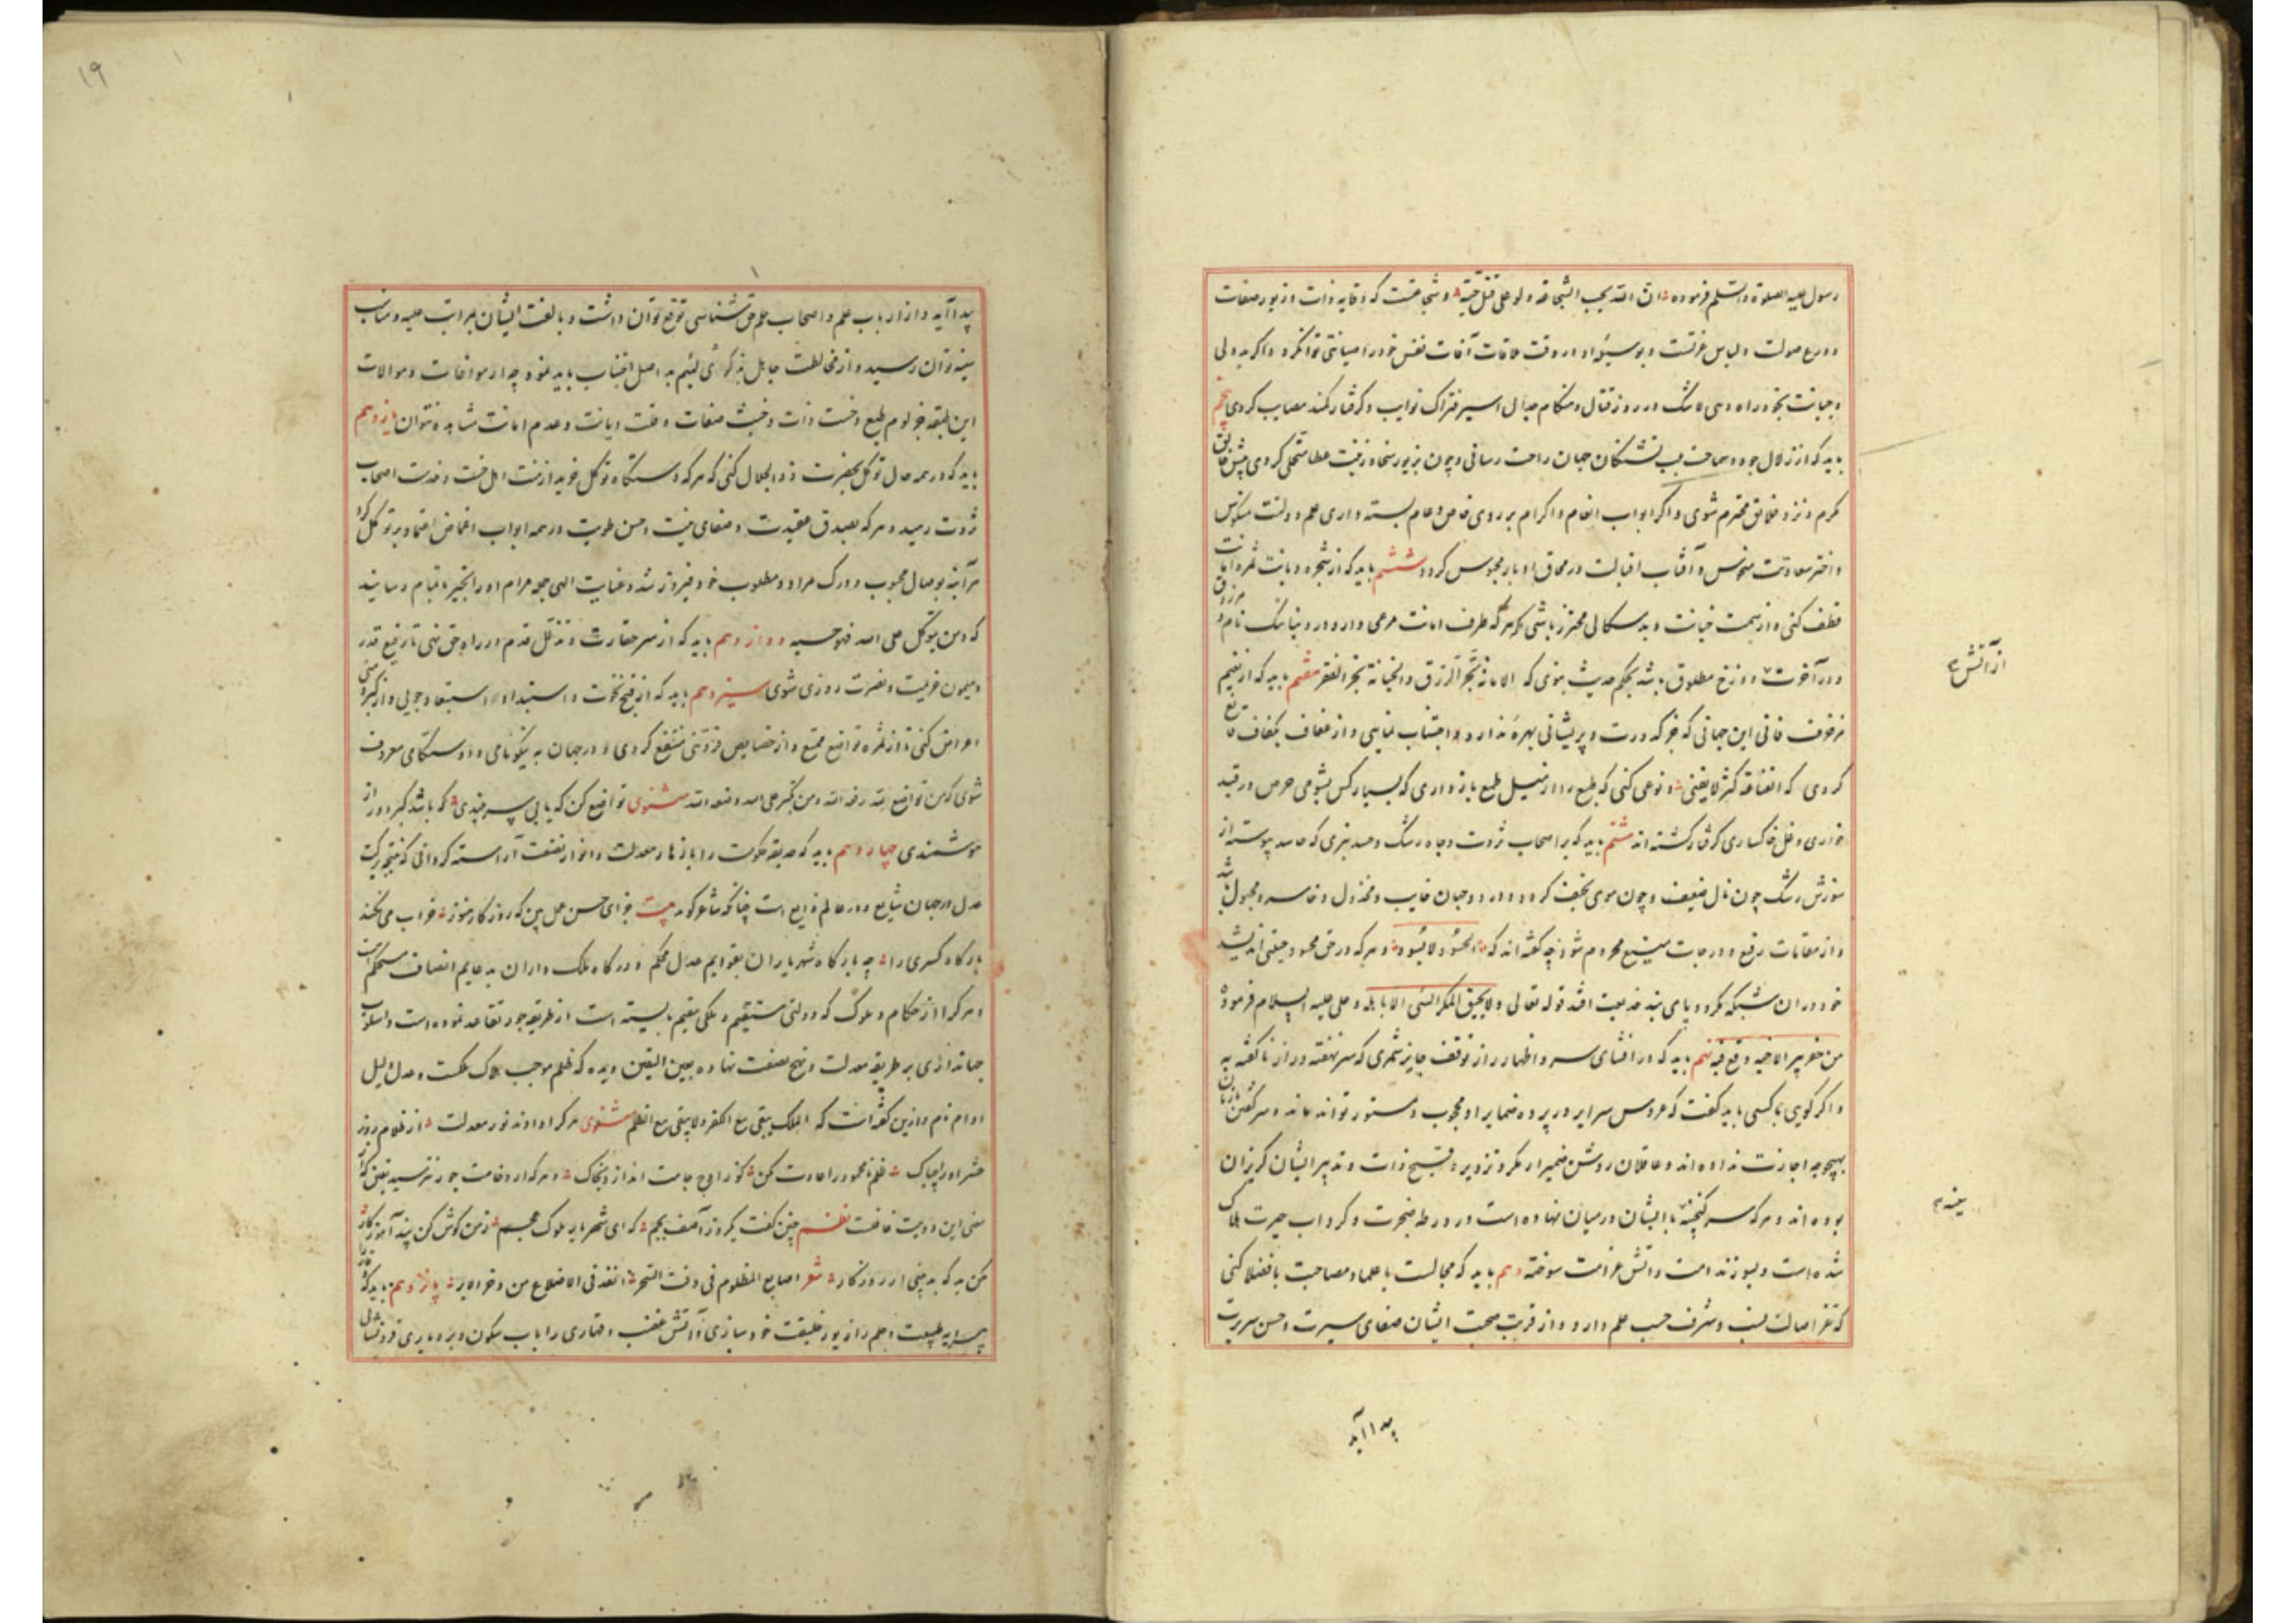 رسول علیه الصلوة والسلم فرموده ان الله یحب الشجاعة ولو علی قتل حیة و شجاعتست که وقایه ذات و زیور صفات
و درع صولت و لباس عزتست و بوسیله او در وقت ملاقات آفات نفس خود را صیانتی توانکرد و اگر بددلی
و جبانت بخود راه دهی لاشک در روز قتال و هنگام جدال اسیر فتراک نوایب و گرفتار کمند مصایب کردی پنجم
باید که از زلال جود و سماحت بلب تشنگان جهان راحت رسانی و چون بزیور سخا و زینت عطا متحلی کردی پیش خالق
مکرم و نزد خلایق محترم شوی و اگر ابواب انعام و اکرام بر روی خاص و عام بسته داری علم دولتت منکوس
و اختر سعادتت منحوس و آفتاب اقبالت در محاق ادبار محبوس کردد ششم باید که از شجره دیانت ثمره امانت
قطف کنی و از تهمت خیانت و بدسکالی محترز باشی که هر که طرف امانت مرعی دارد در دنیا نیک نام و مرزوق
و در آخرت از دوزخ مطلوق باشد بحکم حدیث نبوی که الامانة تجر الرزق والخیانة تجر الفقر هفتم باید که از نعیم
مزخرف فانی این جهانی که جز کدورت و پریشانی بهره ندارد اجتناب نمایی و از عفاف بکفاف قانع
کردی که القناعة کنز لا یفنی و نوعی کنی که طمع را از نیل طمع بازداری که بسیار کس بشومی حرص در قید
خواری و غل خاکساری گرفتار کشته اند هشتم باید که بر اصحاب ثروت و جاه رشک و حسد نبری که حاسد پیوسته از
سوزش رشک چون نال ضعیف و چون موی نحیف کردد و در دو جهان خایب و مخذول و خاسر و مجبول باشد
و از مقامات رفیع و درجات منیع محروم شود چه گفته اند که الحسود لا یسود و هر که در حق محسود حیفی اندیشد
خود در آن شبکه مکر و دیا پای بند خدیعت افتد قوله تعالی ولا یحیق المکر السیئ الا باهله و علی علیه السلام فرموده
من حفر بیرا لاخیه وقع فیه نهم باید که در افشای سر و اظهار راز توقف جایز شمری که سر نهفته و راز ناکفته به
و اگر گویی با کسی باید گفت که عروس سرایر در پرده ضمایر او محجوب و مستور تواند ماند و سر گفتن با زنان
بهیچ وجه اجازت نداده اند و عاقلان روشن ضمیر از مکر و تزویر و قبح ذات و تدبیر ایشان گریزان
بوده اند و هر که سر گنجینه با ایشان در میان نهاده است در ورطه ضجرت و گرداب حیرت هلاک
شده است و بسوز ندامت و آتش غرامت سوخته دهم باید که مجالست با علما و مصاحبت با فضلا کنی
که تفر اصالت نسب و شرف حسب علم دارد و از قربت صحبت ایشان صفای سیرت و حسن سریرت
از آتش
سینه
پیدا آید
۱۹
پیدا آید و از ارباب علم و اصحاب حلم حق شناسی توقع توان داشت و بالفت ایشان بمراتب علیه و مناصب
سنیه توان رسید و از مخالطت جاهل لئیم بد اصل اجتناب باید نمود چه از موافات و موالات
این طبقه جز لوم طبع و خست ذات و خبث صفات و قلت دیانت و عدم امانت مشاهده نتوان یازدهم
باید که در همه حال توکل بحضرت ذوالجلال کنی که هر که دستگاه توکل خرید از منت اهل خست و خدمت اصحاب
ثروت رهید و هر که بصدق عقیدت و صفای نیت و حسن طویت در همه ابواب اغماض اعتماد بر توکل کرد
هر آینه بوصال محبوب و درک مراد و مطلوب خود فیروز شد و عنایت الهی جمله مرام او را بخیر باتمام رسانید
که ومن یتوکل علی الله فهو حسبه دوازدهم باید که از سر حقارت و تذلل قدم در راه حق نهی تا رفیع قدر
و میمون عزیمت و نصرت روزی شوی سیزدهم باید که از قبح نخوت و استبداد و استبعاد جویی و از کبر و منی
اعراض کنی تا از ثمره تواضع ممتع و از خصایص فروتنی منتفع کردی و در جهان به نیکونامی و دوستکامی معروف
شوی که من تواضع لله رفعه الله ومن تکبر علی الله وضعه الله مثنوی تواضع کن که یابی سربلندی که باشد کبر دور از
هوشمندی چهاردهم باید که حدیقه حکومت را بازهار معدلت و انوار نصفت آراسته گردانی که نتیجه برکت
عدل در جهان شایع و در عالم ذایع است چنانکه شاعر گوید بیت جزای حسن عمل بین که روزگار هنوز خراب می نکند
بارگاه کسری را چه بارگاه شهریاران بقوایم عدل محکم و درگاه ملک داران به دعایم انصاف مستحکم است
و هر کرا از حکام و ملوک که دولتی مستقیم و ملکی مقیم بایسته است از طریقه جور تقاعد نموده است و اسلوب
جهانداری بر طریقه معدلت و نهج نصفت نهاده بعین الیقین دیده که ظلم موجب هلاک ملکست و عدل دلیل
دوام نام و ازین گفته است که الملک یبقی مع الکفر ولا یبقی مع الظلم مثنوی هر کرا دادند نور معدلت از ظلام روز
حشر او را چه باک ظلم نامحمود را عادت مکن کو ز اوج جاهت اندازد بخاک و هر که از وخامت جور نترسید یقین که از
معنی این دو بیت غافلست نظم چنین گفت یکروز آصف بجم که ای شهریار ملوک عجم ز من گوش کن پند آموزگار
مکن بد که بد بینی از روزگار شعر اصابع المظلوم فی وقت السحر انفذ فی الاضلاع من وخز الابر پانزدهم باید که
پیرایه طبیعت و حلم را زیور خلیقت خود سازی تا آتش غضب و قهاری را بآب سکون و بردباری فرونشانی